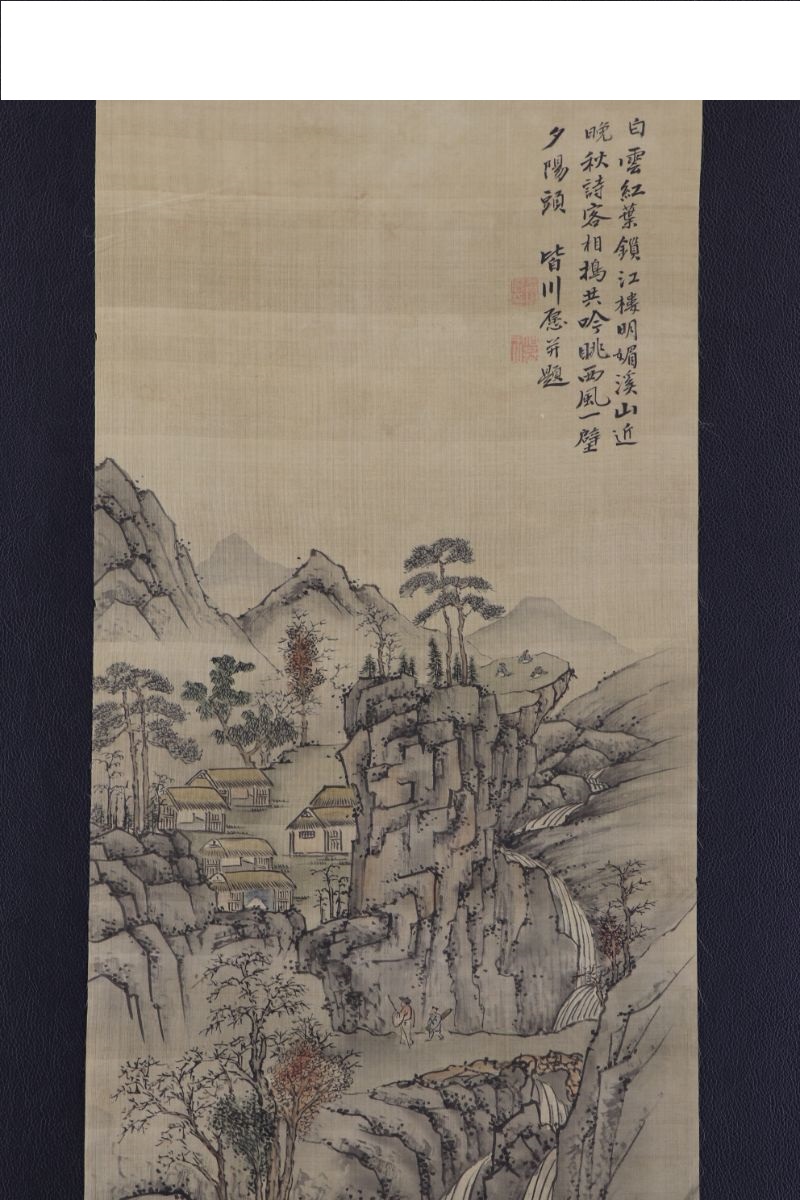 白雲紅葉鎖江樓明媚溪山近
晩秋詩客相携共吟眺西風一壁
夕陽頭　皆川愿并題